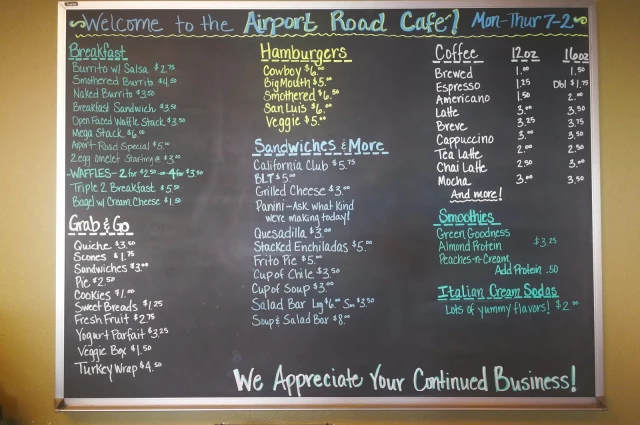 Welcome to the Airport Road Cafe! Mon-Thur 7-2
Breakfast
Burrito w/ Salsa $2.75
Smothered Burrito $4.50
Naked Burrito $3.50
Breakfast Sandwich $3.50
Open Faced Waffle Stack $3.50
Mega Stack $6.00
Airport Road Special $5.00
2 egg omelet Starting @ $3.00
-WAFFLES- 2 for $2.50 or 4 for $3.50
Triple 2 Breakfast $5.50
Bagel w/ Cream Cheese $1.50
Grab & Go
Quiche $3.50
Scones $1.75
Sandwiches $3.00
Pie $2.50
Cookies $1.00
Sweet Breads $1.25
Fresh Fruit $2.75
Yogurt Parfait $3.25
Veggie Box $1.50
Turkey Wrap $4.50
Hamburgers
Cowboy $6.00
Big Mouth $5.00
Smothered $6.50
San Luis $6.00
Veggie $5.00
Sandwiches & More
California Club $5.75
BLT $5.00
Grilled Cheese $3.00
Panini-Ask what kind
we're making today!
Quesadilla $3.00
Stacked Enchiladas $5.00
Frito Pie $5.00
Cup of Chile $3.50
Cup of Soup $3.00
Salad Bar Lrg $6.00 Sm $3.50
Soup & Salad Bar $8.00
Coffee 12oz 16oz
Brewed 1.00 1.50
Espresso 1.25 Dbl $1.75
Americano 1.50 2.00
Latte 3.00 3.50
Breve 3.25 3.75
Cappuccino 3.00 3.50
Tea Latte 2.00 2.50
Chai Latte 2.50 3.00
Mocha 3.00 3.50
And more!
Smoothies
Green Goodness
Almond Protein $3.25
Peaches-n-Cream
Add Protein .50
Italian Cream Sodas
Lots of yummy flavors! $2.00
We Appreciate Your Continued Business!